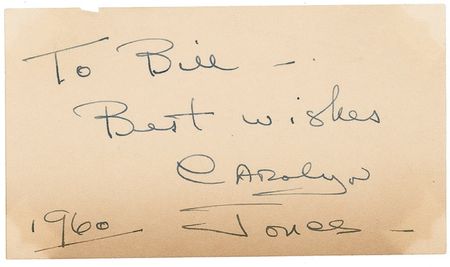 To Bill -
Best wishes
Carolyn
1960 Jones -